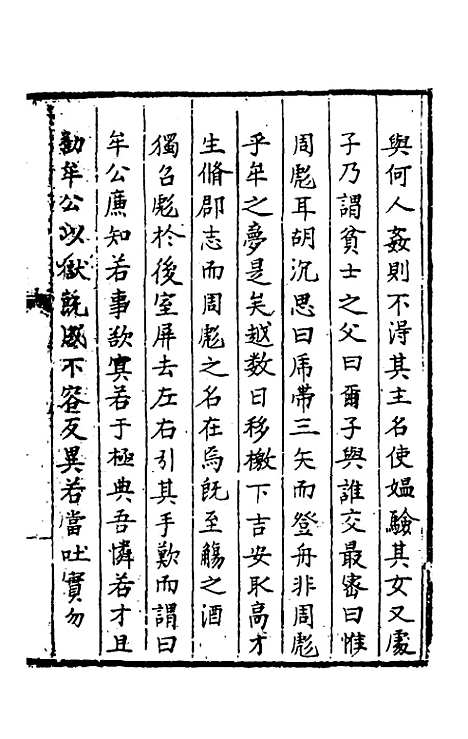 與何人姦則不得其主名使媼驗其女又處
子乃謂貧士之父曰爾子與誰交最密曰惟
周彪耳胡沉思曰虎帶三矢而登舟非周彪
乎牟之夢是矣越數日移檄下吉安取高才
生脩郡志而周彪之名在焉既至觴之酒
獨召彪於後室屏去左右引其手歎而謂曰
牟公廉知若事欲寘若于極典吾憐若才且
勸牟公以獄既成不容反異若當吐實勿